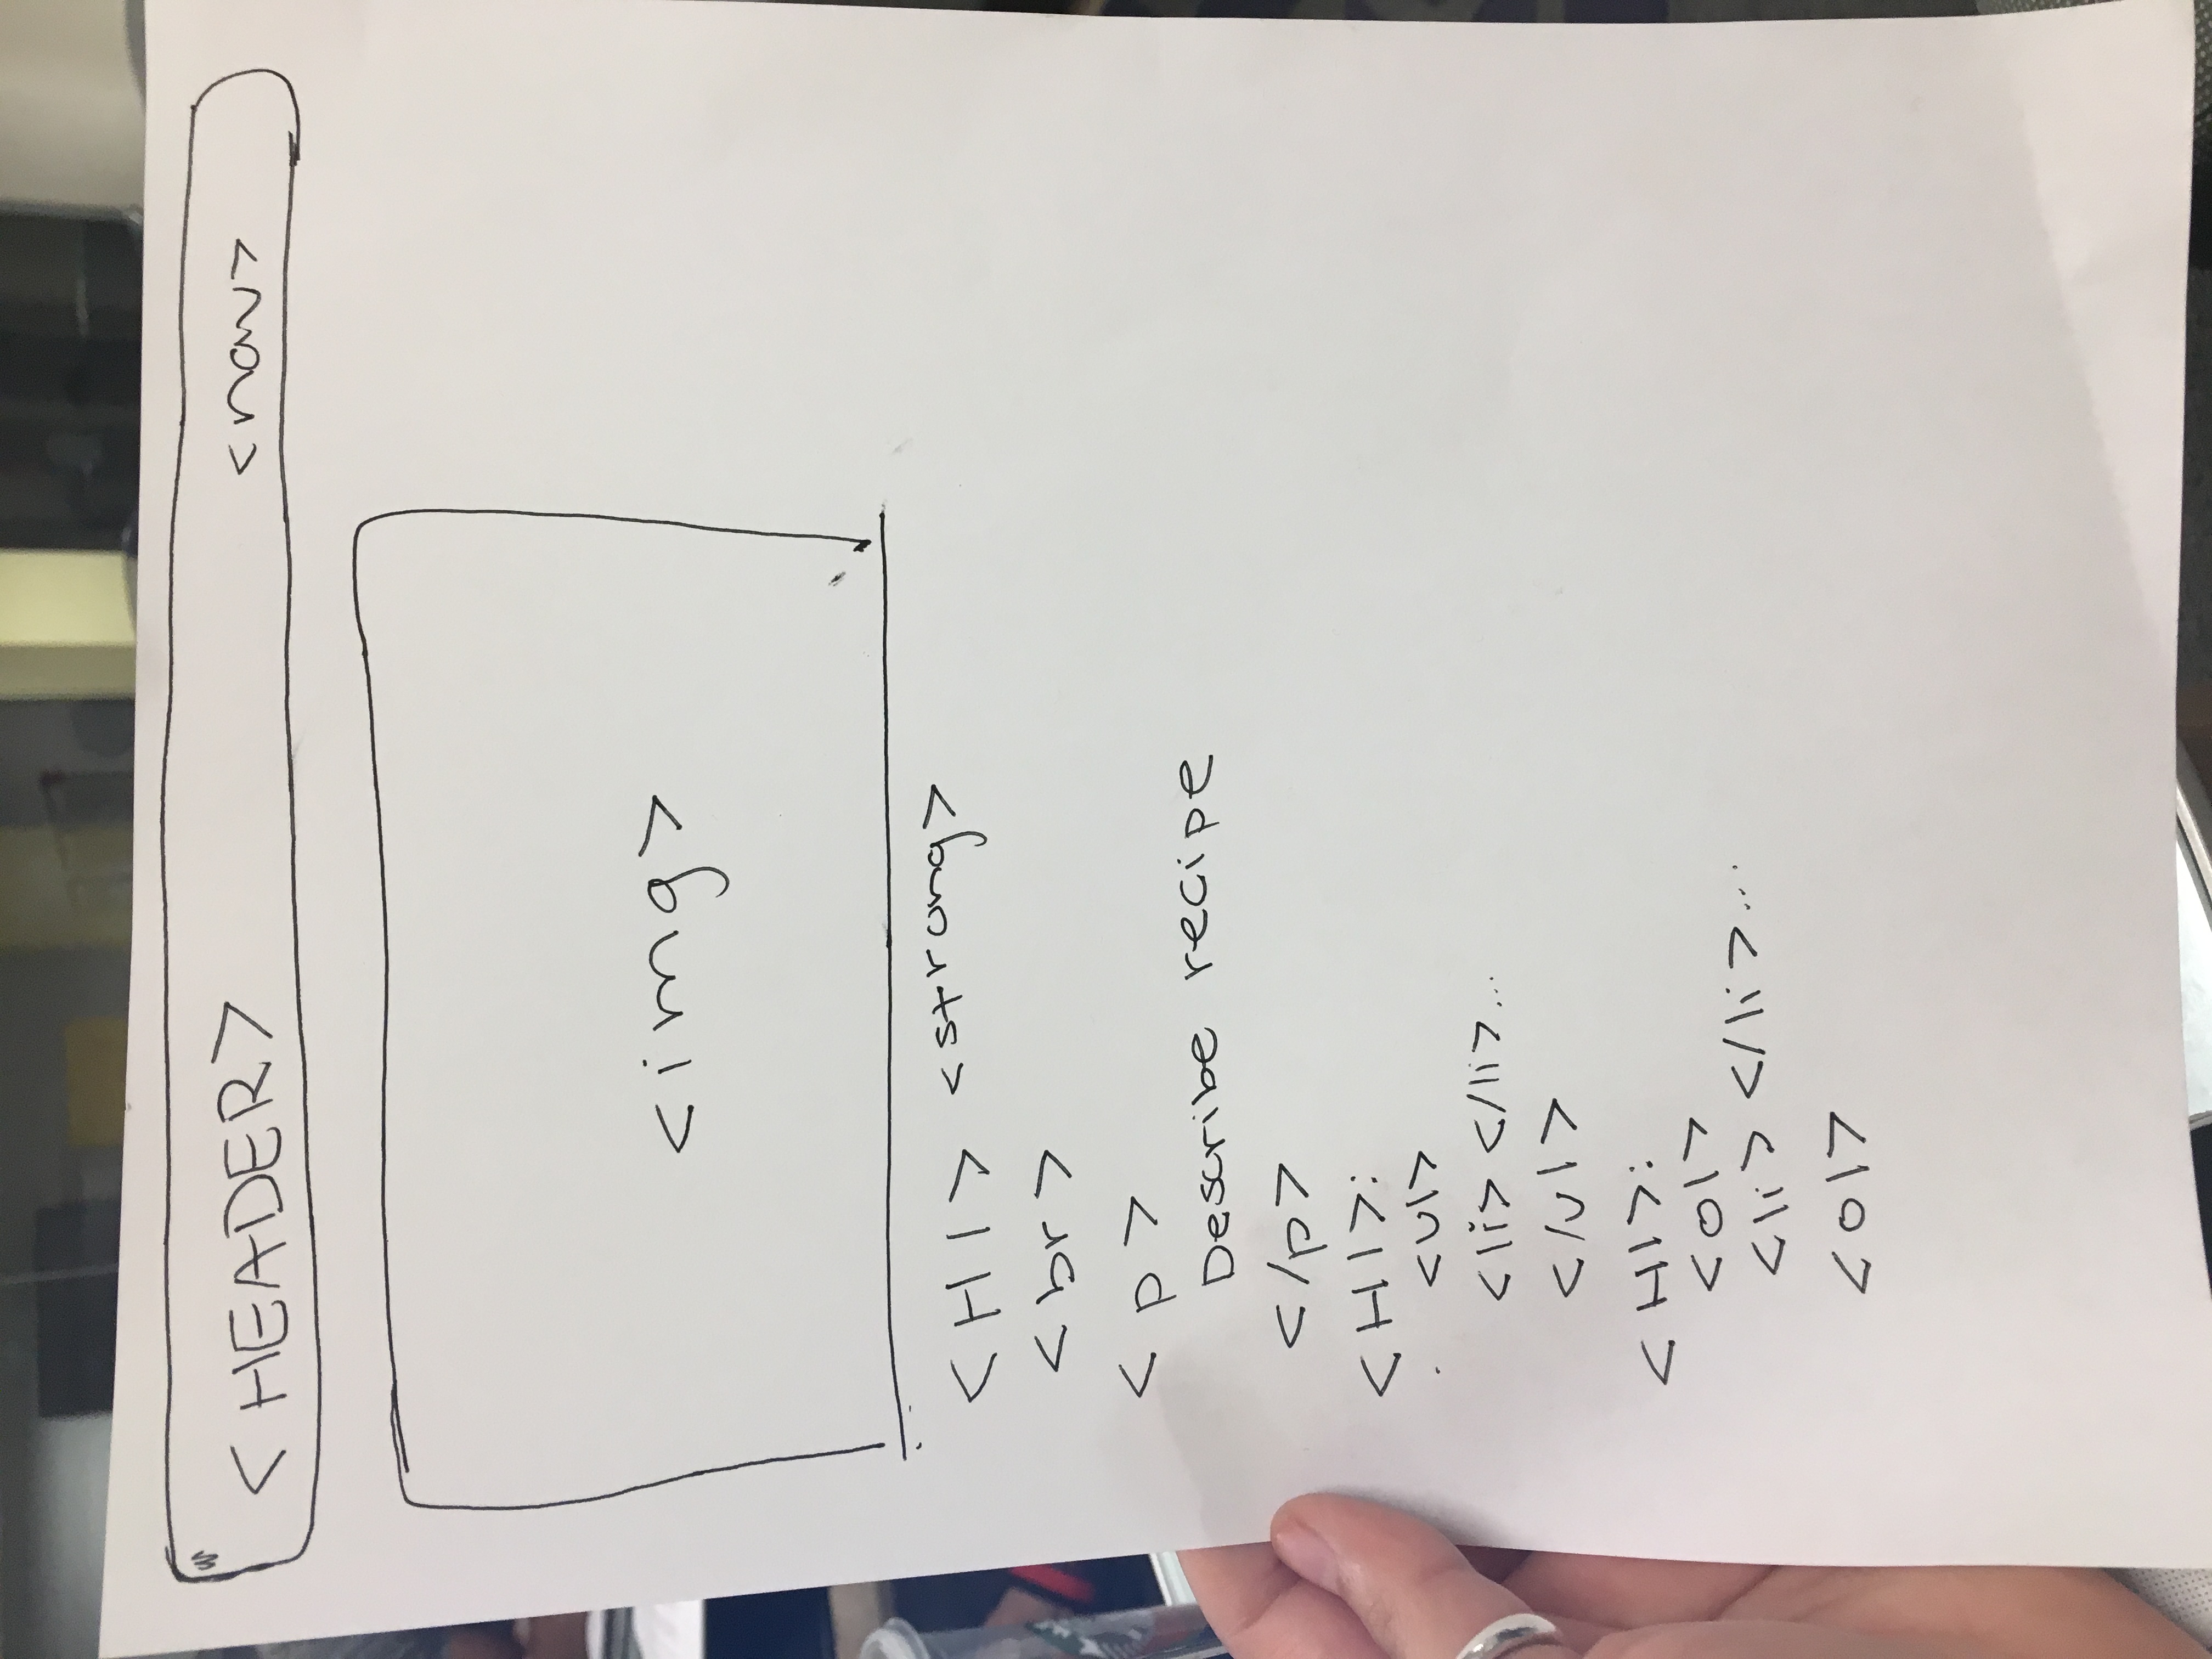 <HEADER> <nav>
<img>
<H1> <strong>
<br>
<p>
Describe recipe
</p>
<H1>:
<ul>
<li> </li>...
</ul>
<H1>:
<ol>
<li> </li>...
<ol>